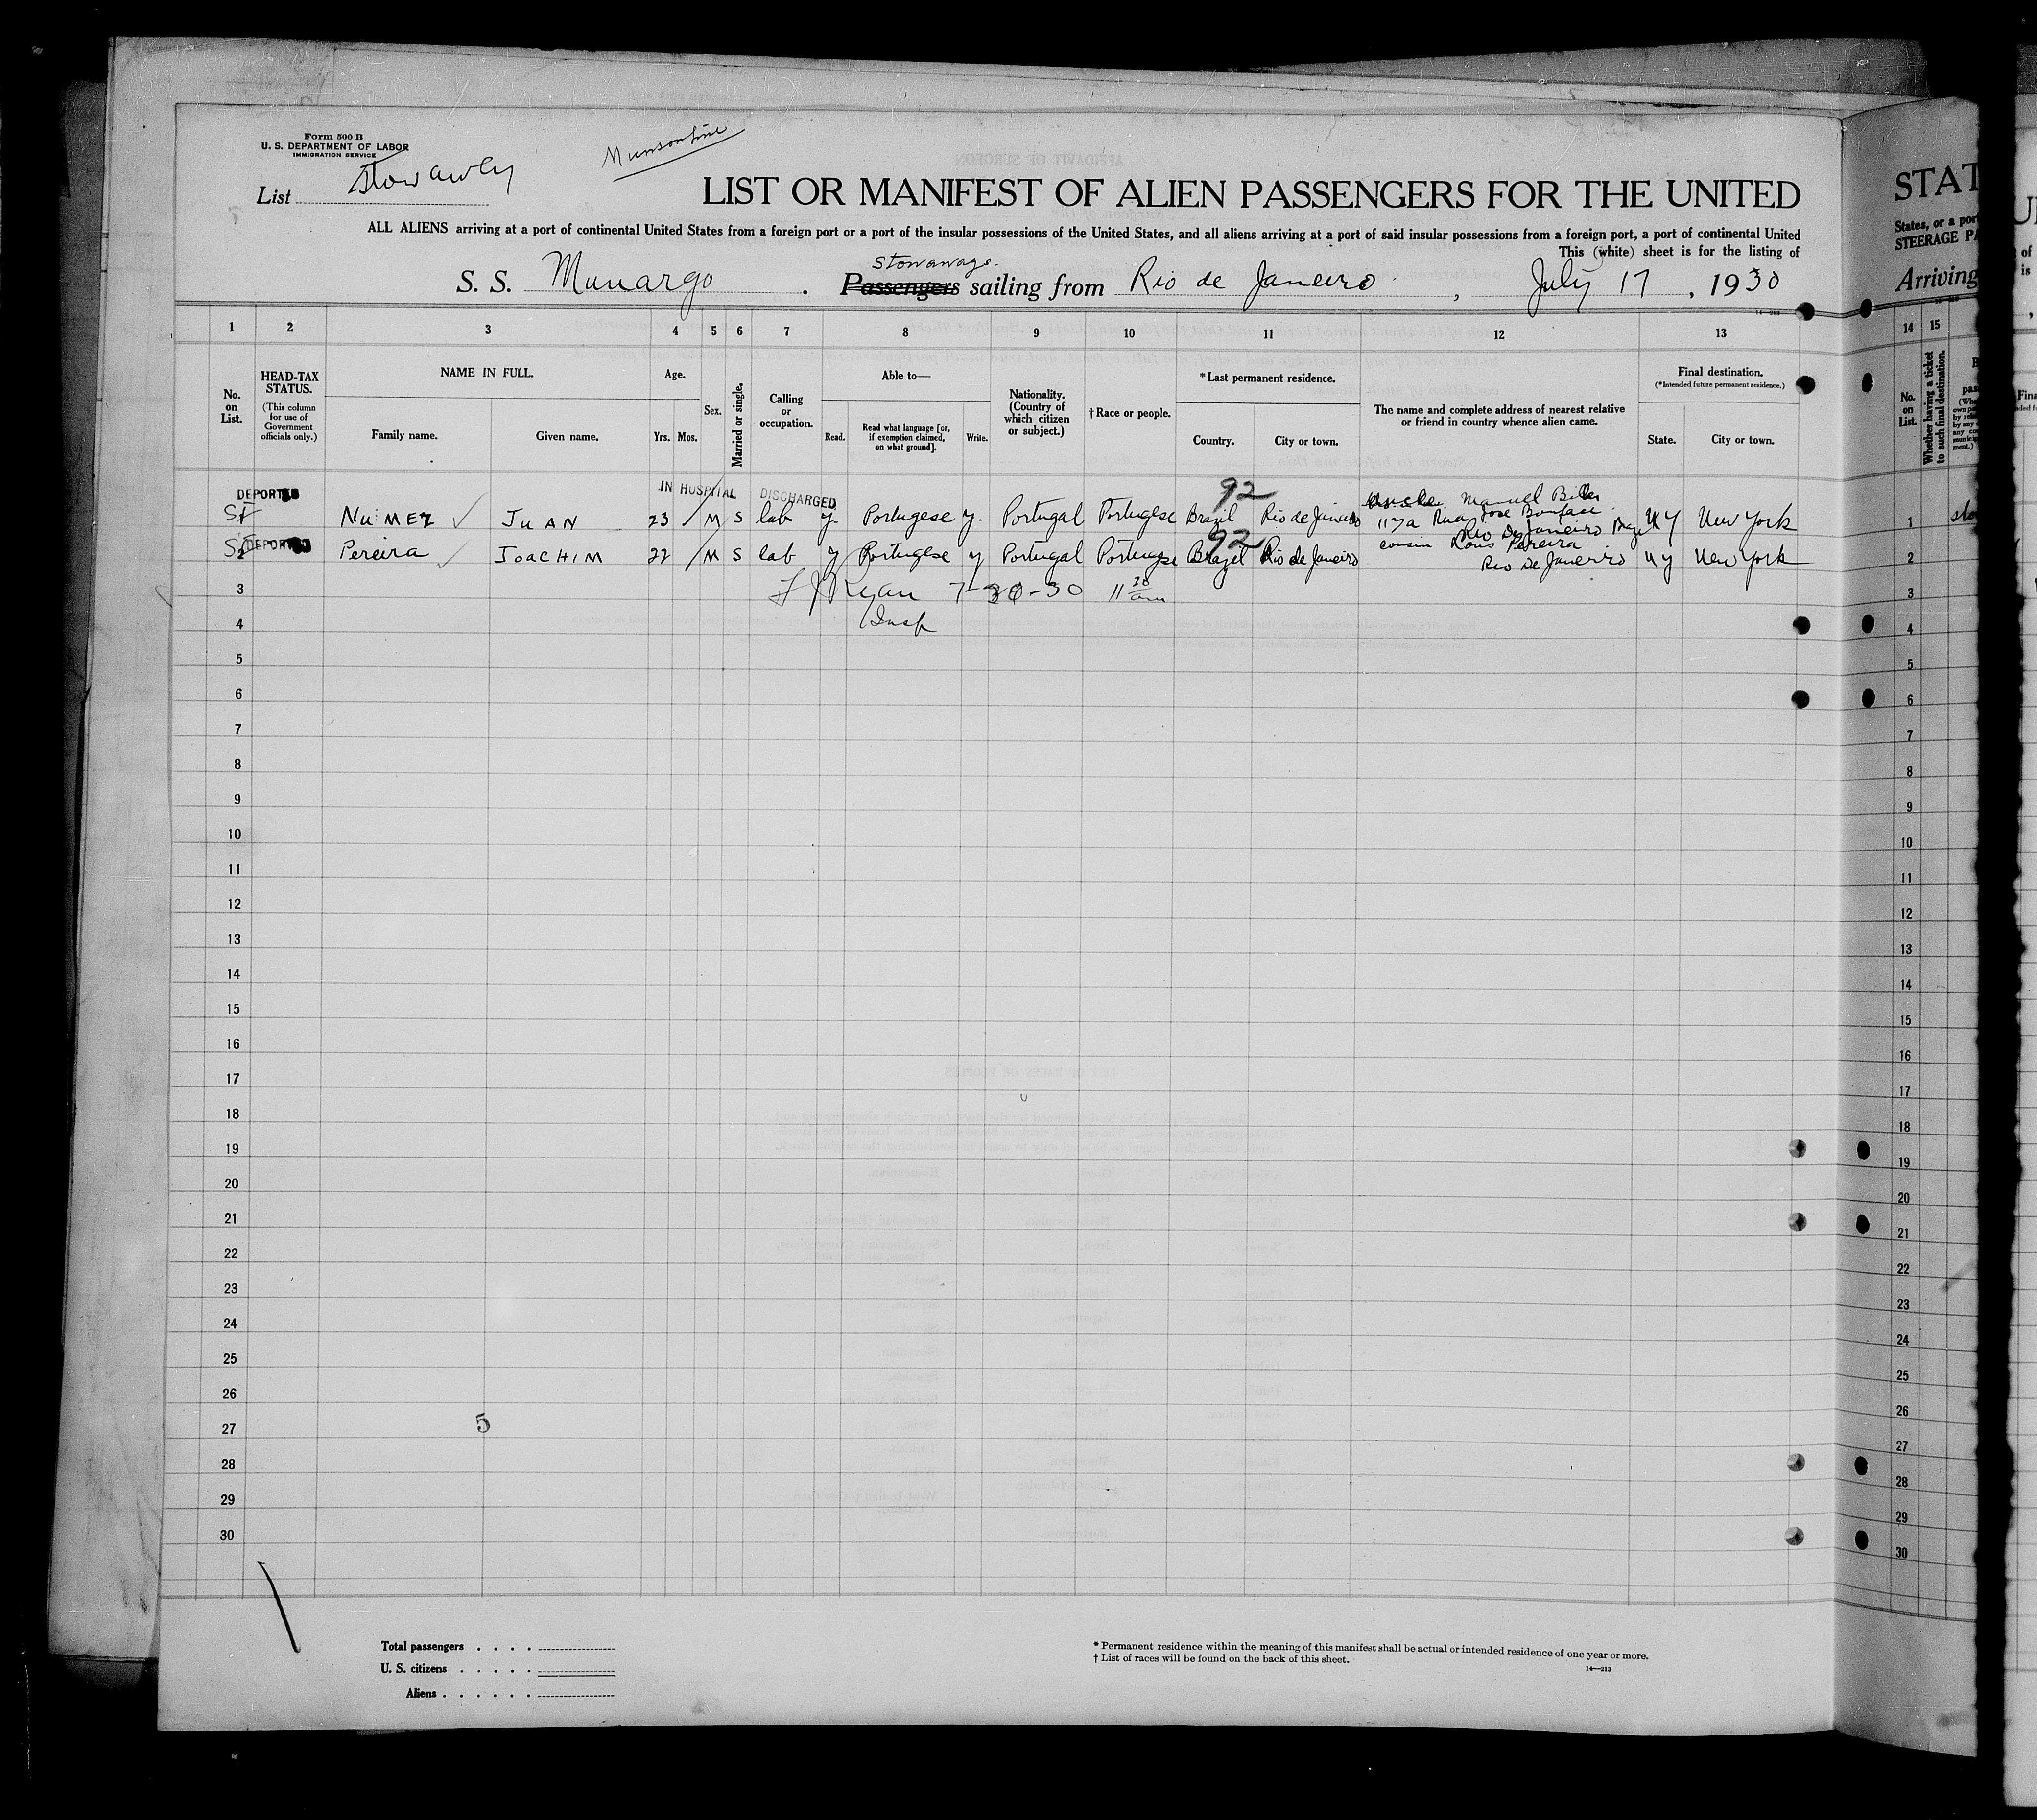 Form 500 B
U. S. DEPARTMENT OF LABOR
IMMIGRATION SERVICE
Munson Line
List Stowaway
LIST OR MANIFEST OF ALIEN PASSENGERS FOR THE UNITED
ALL ALIENS arriving at a port of continental United States from a foreign port or a port of the insular possessions of the United States, and all aliens arriving at a port of said insular possessions from a foreign port, a port of continental United
This (white) sheet is for the listing of
Stowaways.
S. S. Munargo . Passengers sailing from Rio de Janeiro , July 17 , 1930
14—213
1 2 3 4 5 6 7 8 9 10 11 12 13
No. on List.
HEAD-TAX STATUS.
(This column for use of Government officials only.)
NAME IN FULL.
Family name. Given name.
Age.
Yrs. Mos.
Sex.
Married or single.
Calling or occupation.
Able to—
Read.
Read what language [or, if exemption claimed, on what ground].
Write.
Nationality. (Country of which citizen or subject.)
†Race or people.
*Last permanent residence.
Country. City or town.
The name and complete address of nearest relative or friend in country whence alien came.
Final destination.
(*Intended future permanent residence.)
State. City or town.
DEPORTED IN HOSPITAL DISCHARGED 92
Manuel
1 Numez Juan 23 M S lab y Portugese y. Portugal Portugese Brazil Rio de Janeiro 117a Rua Jose Boniface N Y New York
Rio De Janeiro
DEPORTED 92
cousin Louis Pereira
2 Pereira Joachim 22 M S lab y Portugese y Portugal Portugese Brazil Rio de Janeiro Rio De Janeiro N Y New York
3 F J Ryan 7-30-30 11 30 am
4 Insp
5
6
7
8
9
10
11
12
13
14
15
16
17
18
19
20
21
22
23
24
25
26
5
27
28
29
30
Total passengers . . . .
U. S. citizens . . . . .
Aliens . . . . . .
* Permanent residence within the meaning of this manifest shall be actual or intended residence of one year or more.
† List of races will be found on the back of this sheet.
14—213
STAT
States, or a por
STEERAGE PA
Arriving
14 15
No. on List.
Whether having a ticket to such final destination.
1 sto
2
3
4
5
6
7
8
9
10
11
12
13
14
15
16
17
18
19
20
21
22
23
24
25
26
27
28
29
30